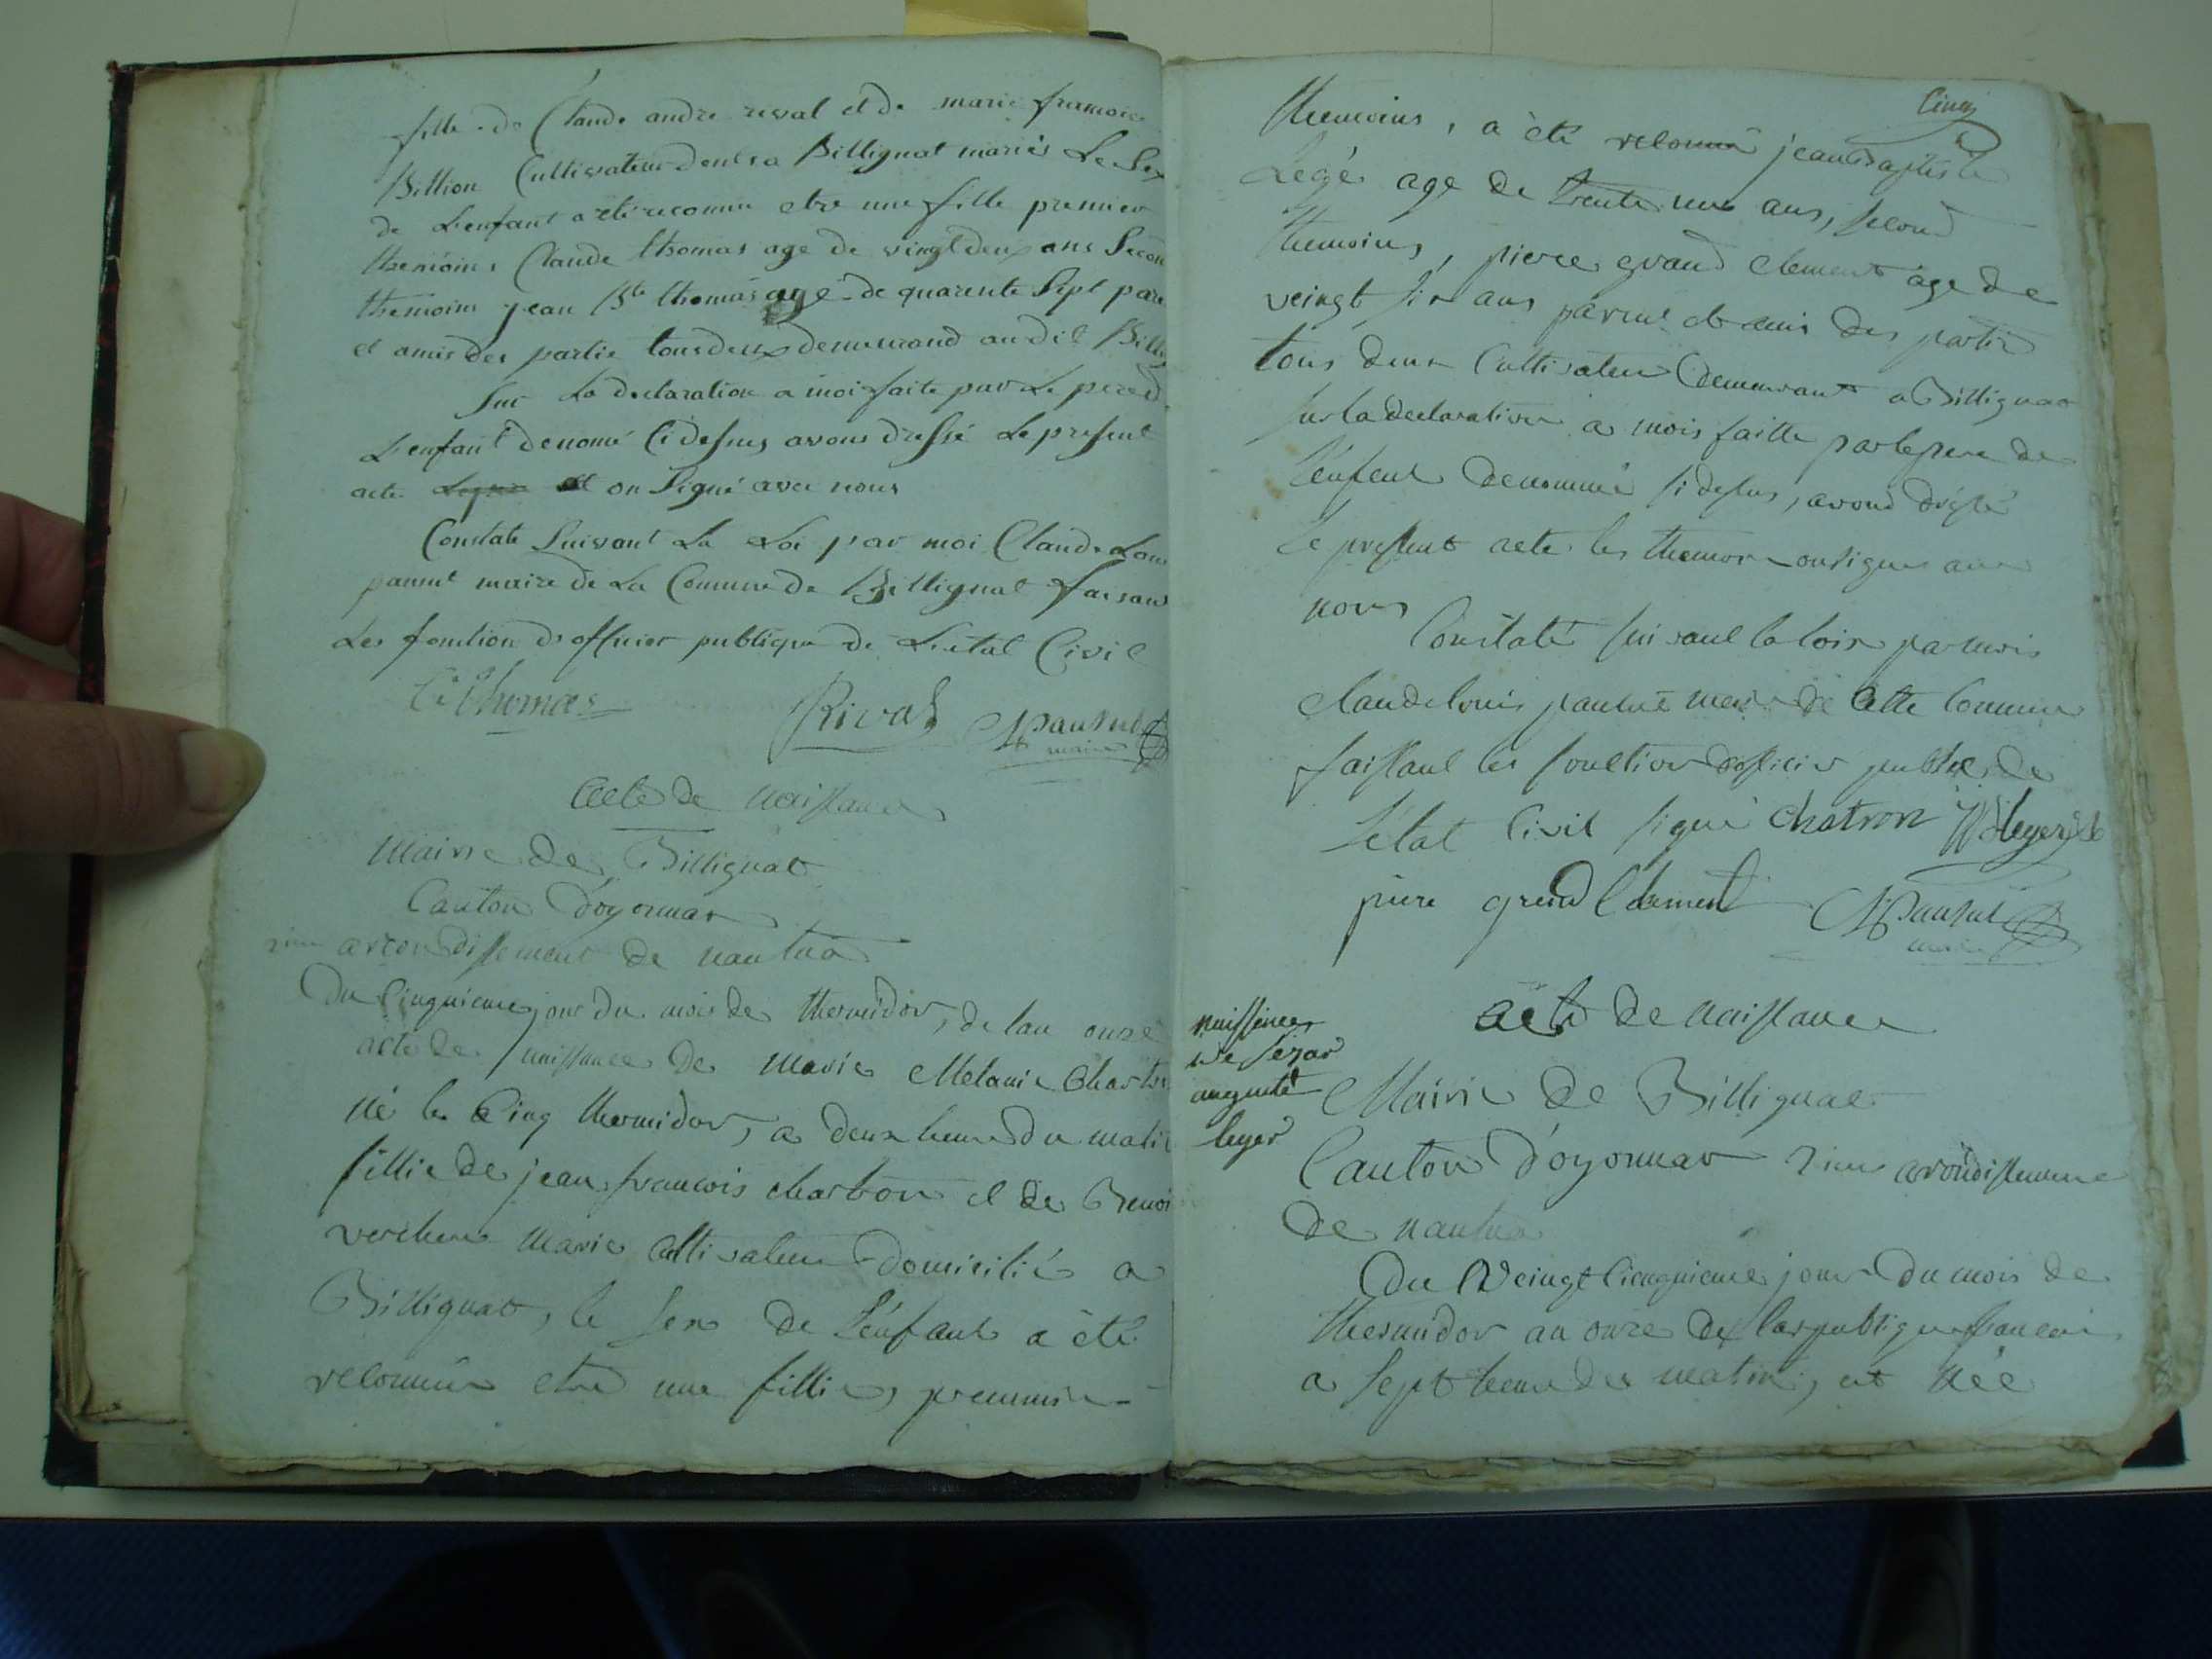 fille de Claude andre rival et de marie francoise
Billion Cultivateur dentra Billignat mariés Le Sex
de L'enfant a eté reconnu etre une fille premier
themoins Claude thomas age de vingt deux ans Secon
themoins jean Bte thomas agé de quarente Sept pare
et amis des partie tous deux demeurand au dit Billig
Sur La declaration a moi faite par Le pere d
L'enfant denomé Ci desus avons dressé Le present
acte et on Signé avec nous
Constate Suivant La Loi par moi Claude Loui
pansut maire de La Commune de Billignat faisant
Les fonction d'officier publique de L'etat Civil
Cl thomas Rival Pansut
maire
acte de naissance
Mairie de Billignat
Canton d'oyonnax
arrondissement de nantua
Du Cinquieme jour du mois de thermidor, de lan onze
acte de naissance de Marie Melanie Charton
né le Cinq thermidor, a deux heure du matin
fillie de jean francois charbon et de Benoi
verchere Marié Cultivateur domicilié a
Billignat, le sex de l'énfant a été
reconnue etre une fillie, premmire
Cinq
themoins, a été reconnu jean Baptiste
Legé age de trente un ans, second
themoins, pierre grand clement age de
veingt six ans parent et amis des partie
tous deux Cultivateur Demeurant a Billignat
sur la declaration a mois faitte par le pere de
l'énfent denommé si desus, avons dréssé
le present acte les themoin on signes avec
nous
Constaté suivant la loix par mois
claude louis pansut maire de Cette Commune
faissant les fonction d'officier public de
l'état Civil signé chatron leger
piere grend Clement Pansut
maire
naissence
de sézar
auguste
leger
acte de naissance
Mairie de Billignat
Canton d'oyonnax arondissement
de nantua
Du Veingt Cienquieme jour du mois de
thermidor an onze de la republique francais
a sept heure du matin, est née